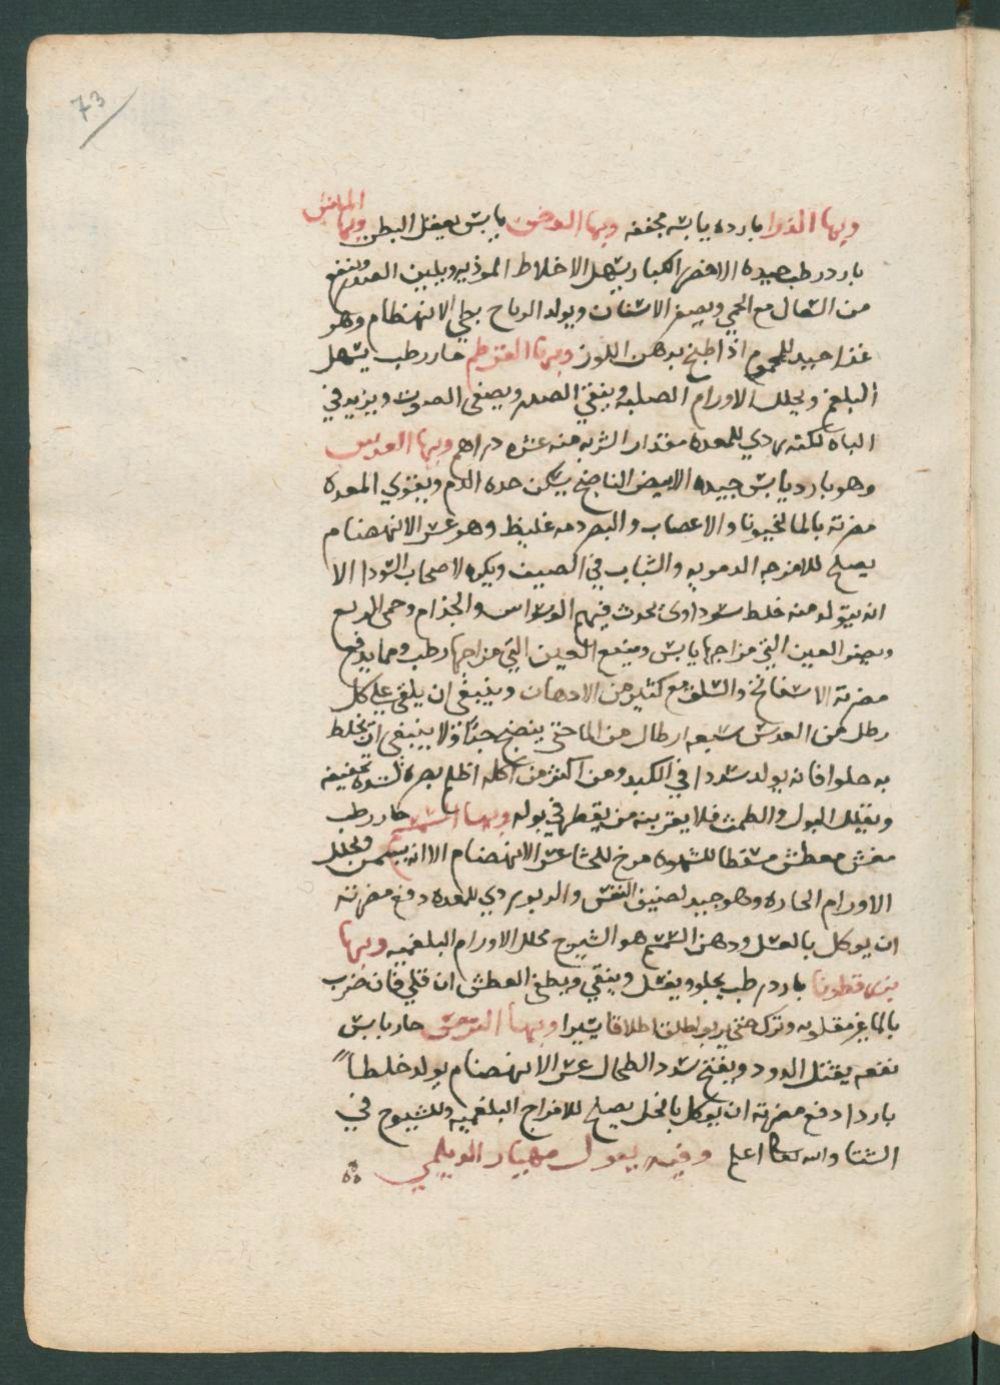 73
وبها الذرا بارده يابسه مجففه وبها الدخن يابس يعقل البطن وبها الماش
بارد رطب جيده الاخضر الكبار يسهل الاخلاط الموذيه ويلين الصدر وينفع
من السعال مع الحمي ويصفر الاسنان ويولد الرياح بطي الانهضام وهو
غذا جيد للمحموم اذا طبخ بدهن اللوز وبها القرطم حار رطب يسهل
البلغم ويحلل الاورام الصلبه وينقي الصدر ويصفي الصوت ويزيد في
الباه لكنه ردي للمعده مقدار الشربه منه عشره دراهم وبها العدس
وهو بارد يابس جيده الابيض الناضج يسكن حده الدم ويقوي المعده
مضرته بالمالنخيونا والاعصاب والبصر دمه غليظ وهو عسر الانهضام
يصلح للامزجه الدمويه والشباب في الصيف ويكره لاصحاب السودا الا
انه يتولد منه خلط سوداوى يحدث فيهم الوسواس والجذام وحمى الربع
ويضر العين التي مزاجها يابس وينفع العين التي مزاجها رطب ومما يدفع
مضرته الاسفاناخ والسلق مع كثير من الادهان وينبغي ان يلقى علي كل
رطل من العدس سبعه ارطال من الما حتى ينضج جيدا ولا ينبغي ان يخلط
به حلوا فانه يولد سددا في الكبد ومن اكثر من اكله اظلم بصره لشده تجفيفه
ويقلل البول والطمث فلا يقربنه من يقطر في بوله وبها السمسم حار رطب
مغش معطش مسقطا للشهوه مرخ للمعا عسر الانهضام الا انه يسمن ويحلل
الاورام الحاره وهو جيد لضيق النفس والربو ردي للمعده دفع مضرته
ان يوكل بالعسل ودهن السمسم هو الشيرج محلل الاورام البلغميه وبها
بزر قطونا بارد رطب يجلو ويغسل وينقي ويطفي العطش ان قلي فان ضرب
بالما غير مقلو به وترك حتى يربو اطلق اطلاقا يسيرا وبها الترمس حار يابس
نفعه يقتل الدود ويفتح سدد الطحال عسر الانهضام يولد خلطا
باردا دفع مضرته ان يوكل بالخل يصلح للامزاج البلغميه وللشيوخ في
الشتا والله تعالى اعلم وفيه يقول مهيار الديلمي